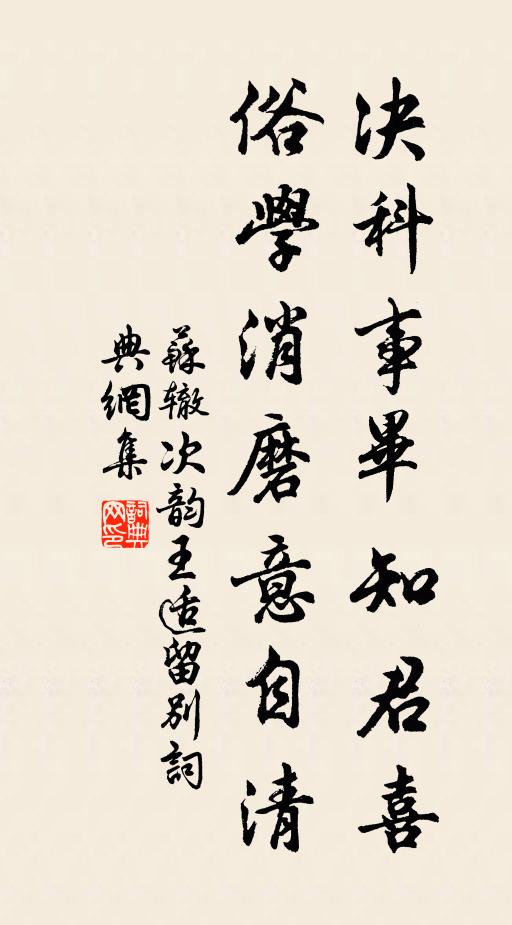 决科事畢知君喜
俗學消磨意自清
蘇辙次韵王适留别詞
典網集
詞典网印